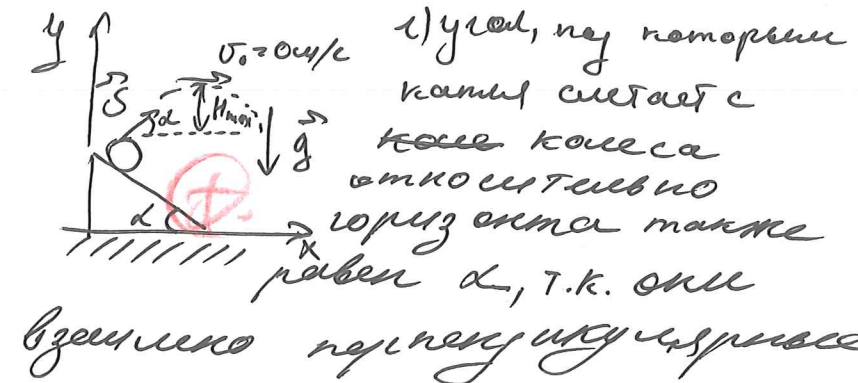 y
υ₀ = 0 м/с
1) угол, под которым
капля слетает с
S α Hmax
g
коле колеса
относительно
α
горизонта также
x
равен α, т.к. они
взаимно перпендикулярные